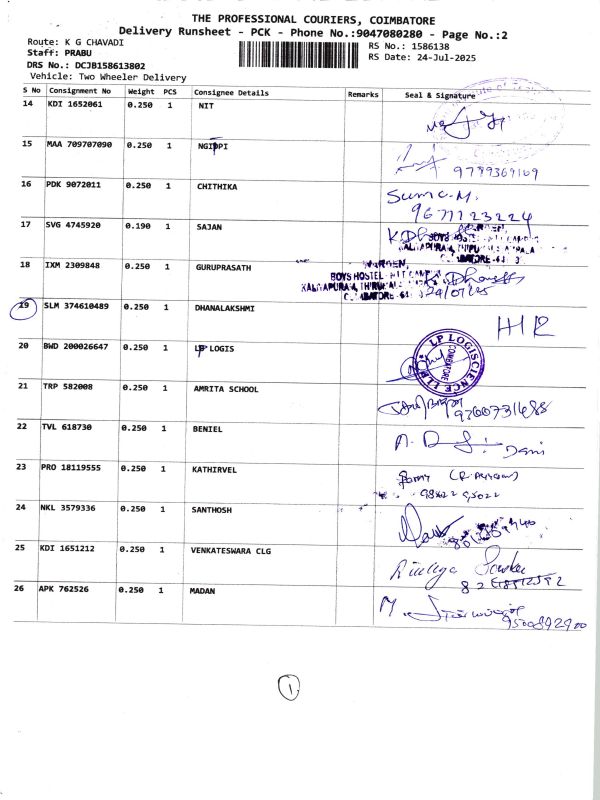 THE PROFESSIONAL COURIERS, COIMBATORE
Delivery Runsheet - PCK - Phone No.:9047080280 - Page No.:2
Route: K G CHAVADI
RS No.: 1586138
Staff: PRABU
RS Date: 24-Jul-2025
DRS No.: DCJB158613802
Vehicle: Two Wheeler Delivery
S No Consignment No Weight PCS Consignee Details Remarks Seal & Signature
14 KDI 1652061 0.250 1 NIT
15 MAA 709707090 0.250 1 NGIPPI 9789369109
16 PDK 9072011 0.250 1 CHITHIKA Suma.M.
9677123224
17 SVG 4745920 0.190 1 SAJAN
18 IXM 2309848 0.250 1 GURUPRASATH WARDEN,
BOYS HOSTEL
19 SLM 374610489 0.250 1 DHANALAKSHMI
20 BWD 200026647 0.250 1 LP LOGIS LP LOGISCIENCE LLP COIMBATORE
21 TRP 582008 0.250 1 AMRITA SCHOOL
22 TVL 618730 0.250 1 BENIEL
23 PRO 18119555 0.250 1 KATHIRVEL
98422 95022
24 NKL 3579336 0.250 1 SANTHOSH
25 KDI 1651212 0.250 1 VENKATESWARA CLG
26 APK 762526 0.250 1 MADAN M.
9500892900
1